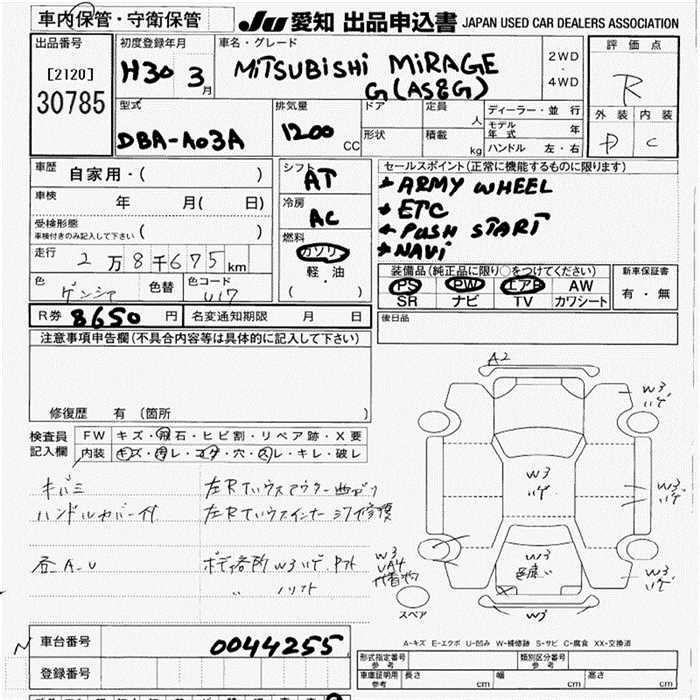 車内保管・守衛保管
JU 愛知 出品申込書 JAPAN USED CAR DEALERS ASSOCIATION
出品番号
[2120]
30785
初度登録年月
H30 3月
車名・グレード
MITSUBISHI MIRAGE
G(AS&G)
2WD
・
4WD
評価点
R
外装 内装
D C
型式
DBA-A03A
排気量
1200 CC
ドア
形状
定員 人
積載 kg
ディーラー・並行
モデル年式 年
ハンドル 左・右
車歴
自家用・( )
車検
年 月( 日)
受検形態
車検付きのみ記入して下さい ( )
走行
2万8千675km
色
色替
色コード
U17
シフト
AT
冷房
AC
燃料
ガソリン
軽・油
( )
セールスポイント(正常に機能するものに限り)
* ARMY WHEEL
* ETC
* PUSH START
* NAVI
装備品(純正品に限り○をつけてください)
PS PW エアB AW
SR ナビ TV カワシート
新車保証書
有・無
R券 8650円
名変通知期限 月 日
後日品
注意事項申告欄(不具合内容等は具体的に記入して下さい)
修復歴 有 (箇所 )
検査員
記入欄
FW キズ・飛石・ヒビ割・リペア跡・X要
内装 キズ・汚レ・コゲ・穴・スレ・キレ・破レ
キバミ
ハンドルカバー付
左Rタイヤハウスインナー
A2
W3
W3
W3
W3
W3
W3
W3
スペア
A-キズ E-エクボ U-凹み W-補修跡 S-サビ C-腐食 XX-交換済
車台番号
0044255
登録番号
形式指定番号
参考
類別区分番号
参考
車庫証明用
参考
長さ cm
幅 cm
高さ cm